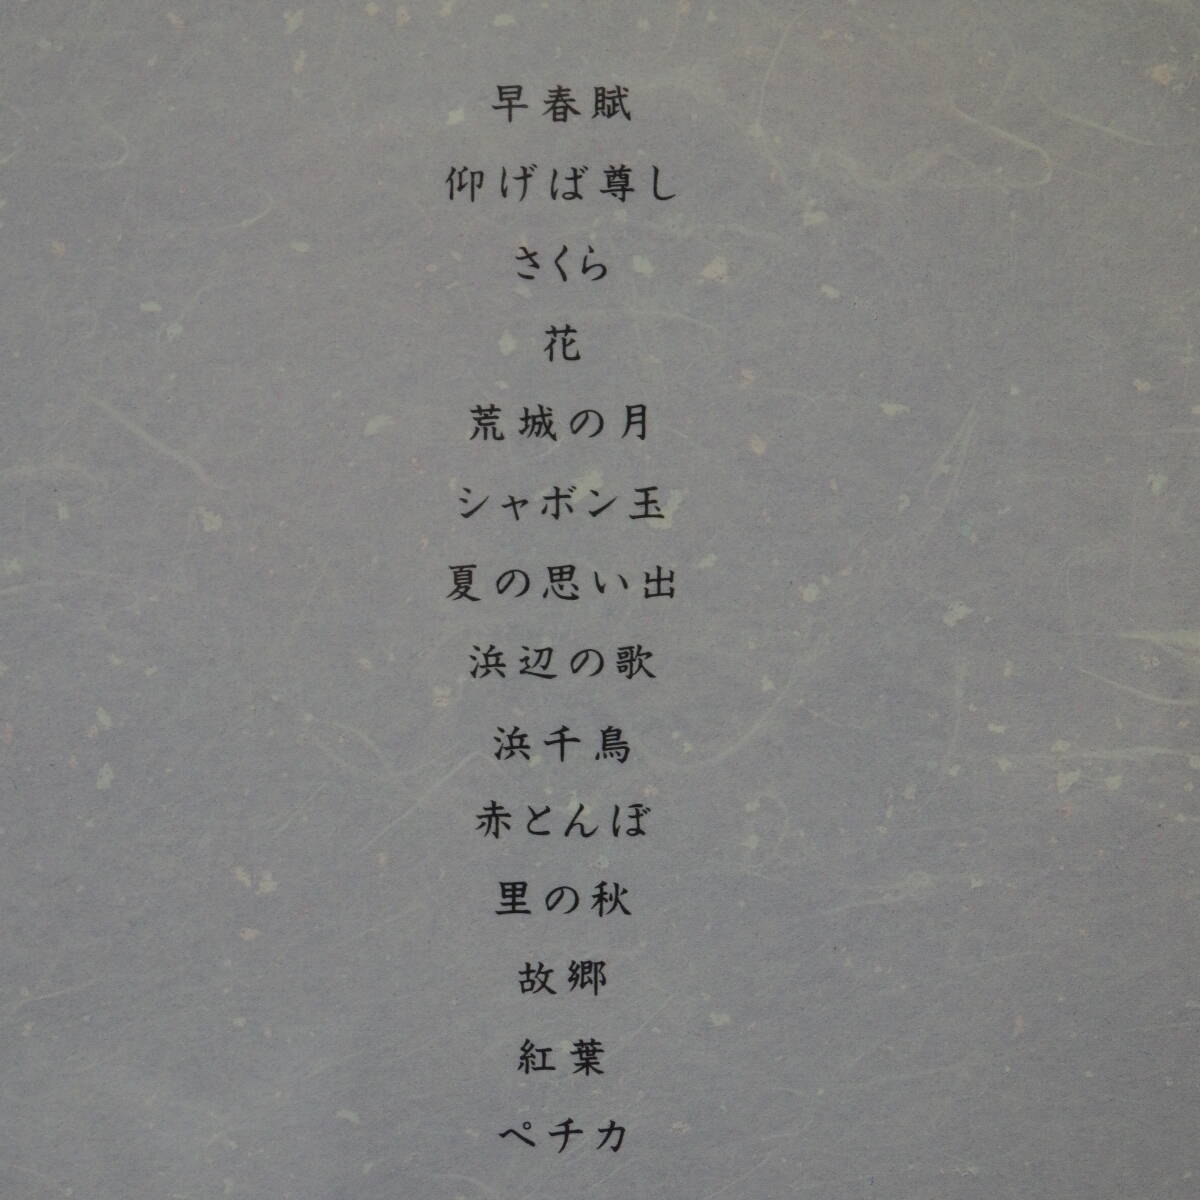 早春賦
仰げば尊し
さくら
花
荒城の月
シャボン玉
夏の思い出
浜辺の歌
浜千鳥
赤とんぼ
里の秋
故郷
紅葉
ペチカ